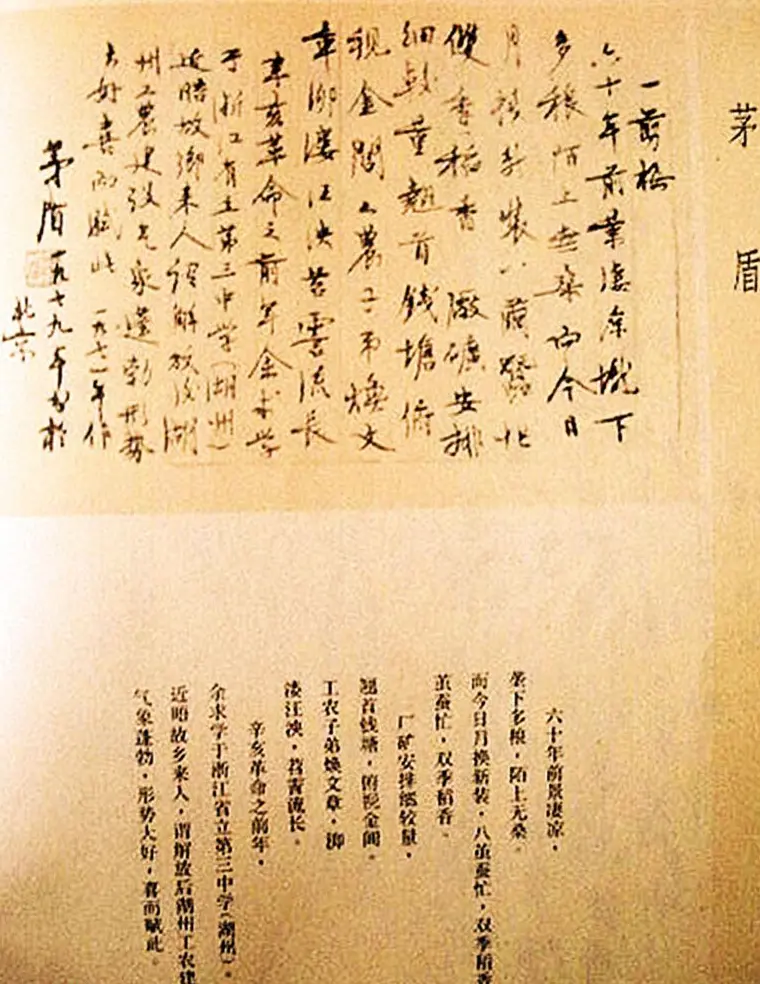 茅盾
一剪梅
六十年前景淒涼壠下
多稂陌上無桑而今日
月换新裝八繭蠶忙
雙季稻香 廠礦安排
細較量翹首錢塘俯
視金閶工農子弟煥文
章泖漊江泱苕霅流長
辛亥革命之前年余求学
于浙江省立第三中学(湖州)
近晤故鄉来人谓解放後湖
州工農建设气象蓬勃形势
大好喜而赋此 一九七一年作
茅盾一九七九年书於
北京
六十年前景凄凉，
垄下多稂，陌上无桑。
而今日月换新装，八茧蚕忙，双季稻香
茧蚕忙，双季稻香。
厂矿安排细较量，
翘首钱塘，俯视金阊。
工农子弟焕文章，泖
溇江泱，苕霅流长。
辛亥革命之前年，
余求学于浙江省立第三中学(湖州)。
近晤故乡来人，谓解放后湖州工农建
气象蓬勃，形势大好，喜而赋此。